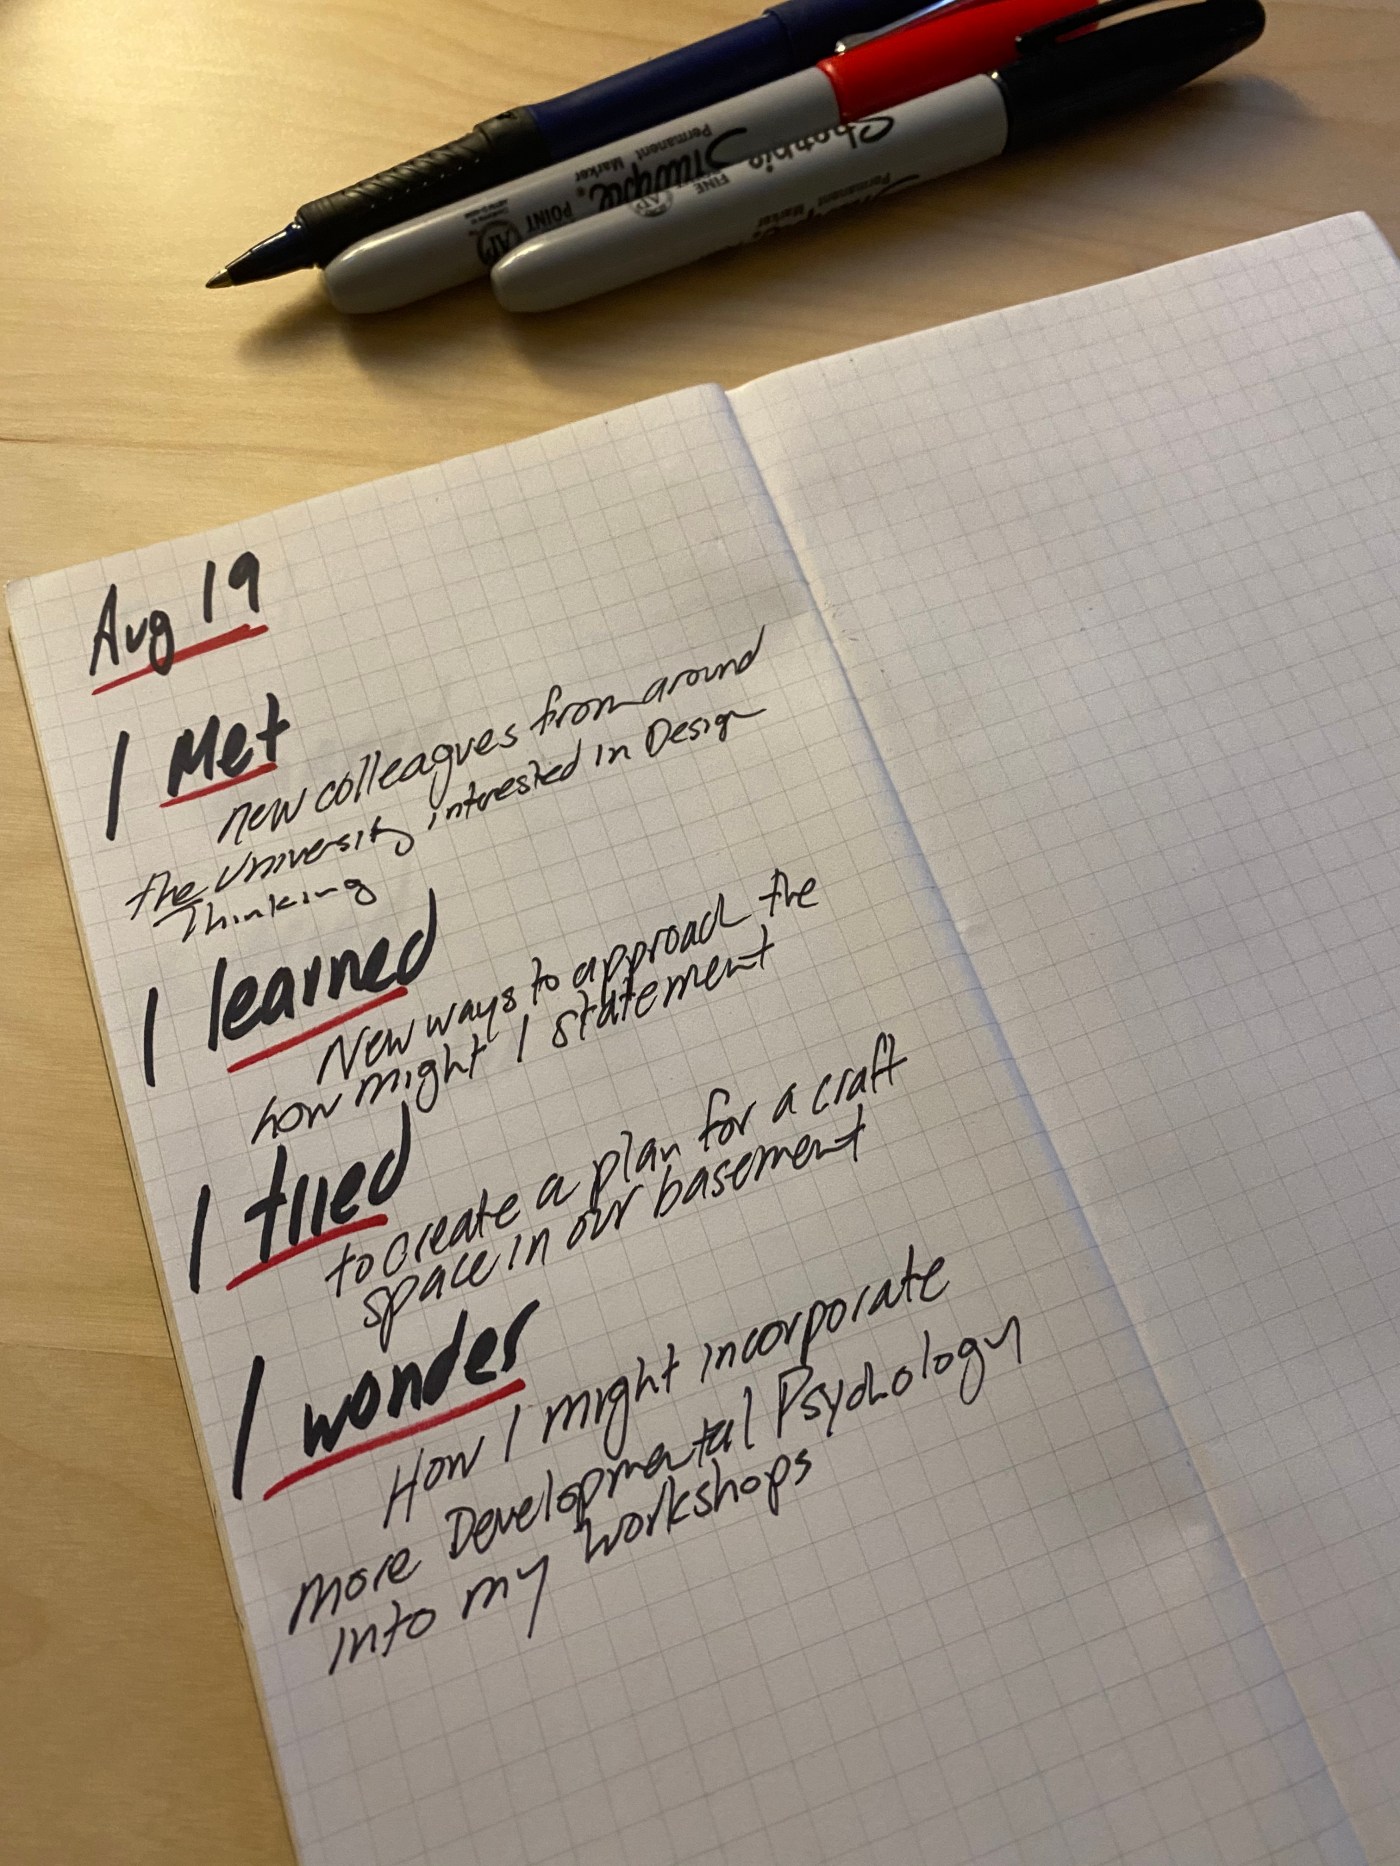 Sharpie
Permanent Marker
FINE POINT
AP
Sharpie
Permanent Marker
Aug 19
I Met
new colleagues from around
the University intrested in Design
Thinking
I learned
New ways to approach the
how might I statement
I tried
to create a plan for a craft
space in our basement
I wonder
How I might incorporate
more Developmental Psychology
into my workshops